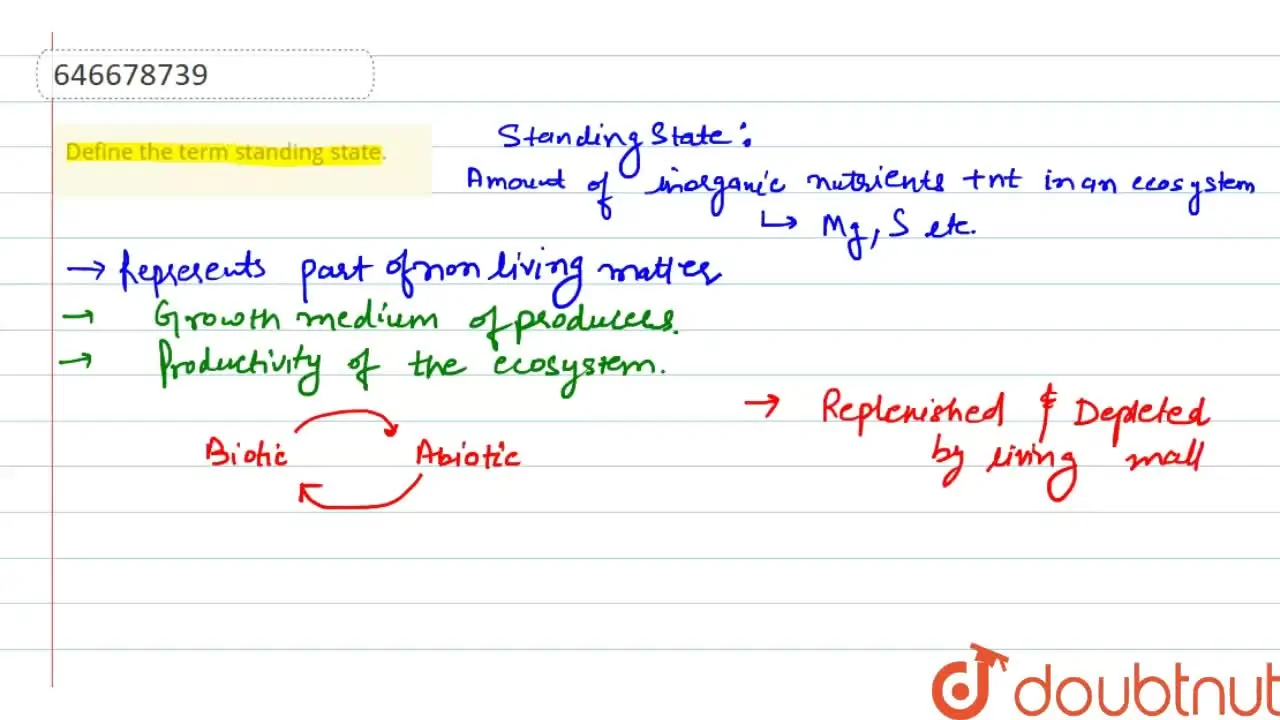 646678739
Define the term standing state.
Standing State:
Amount of inorganic nutrients +nt in an ecosystem
↳ Mg, S etc.
→ Represents part of non living matter
→ Growth medium of producers.
→ Productivity of the ecosystem.
→ Replenished & Depleted
by living matt
Biotic Abiotic
doubtnut